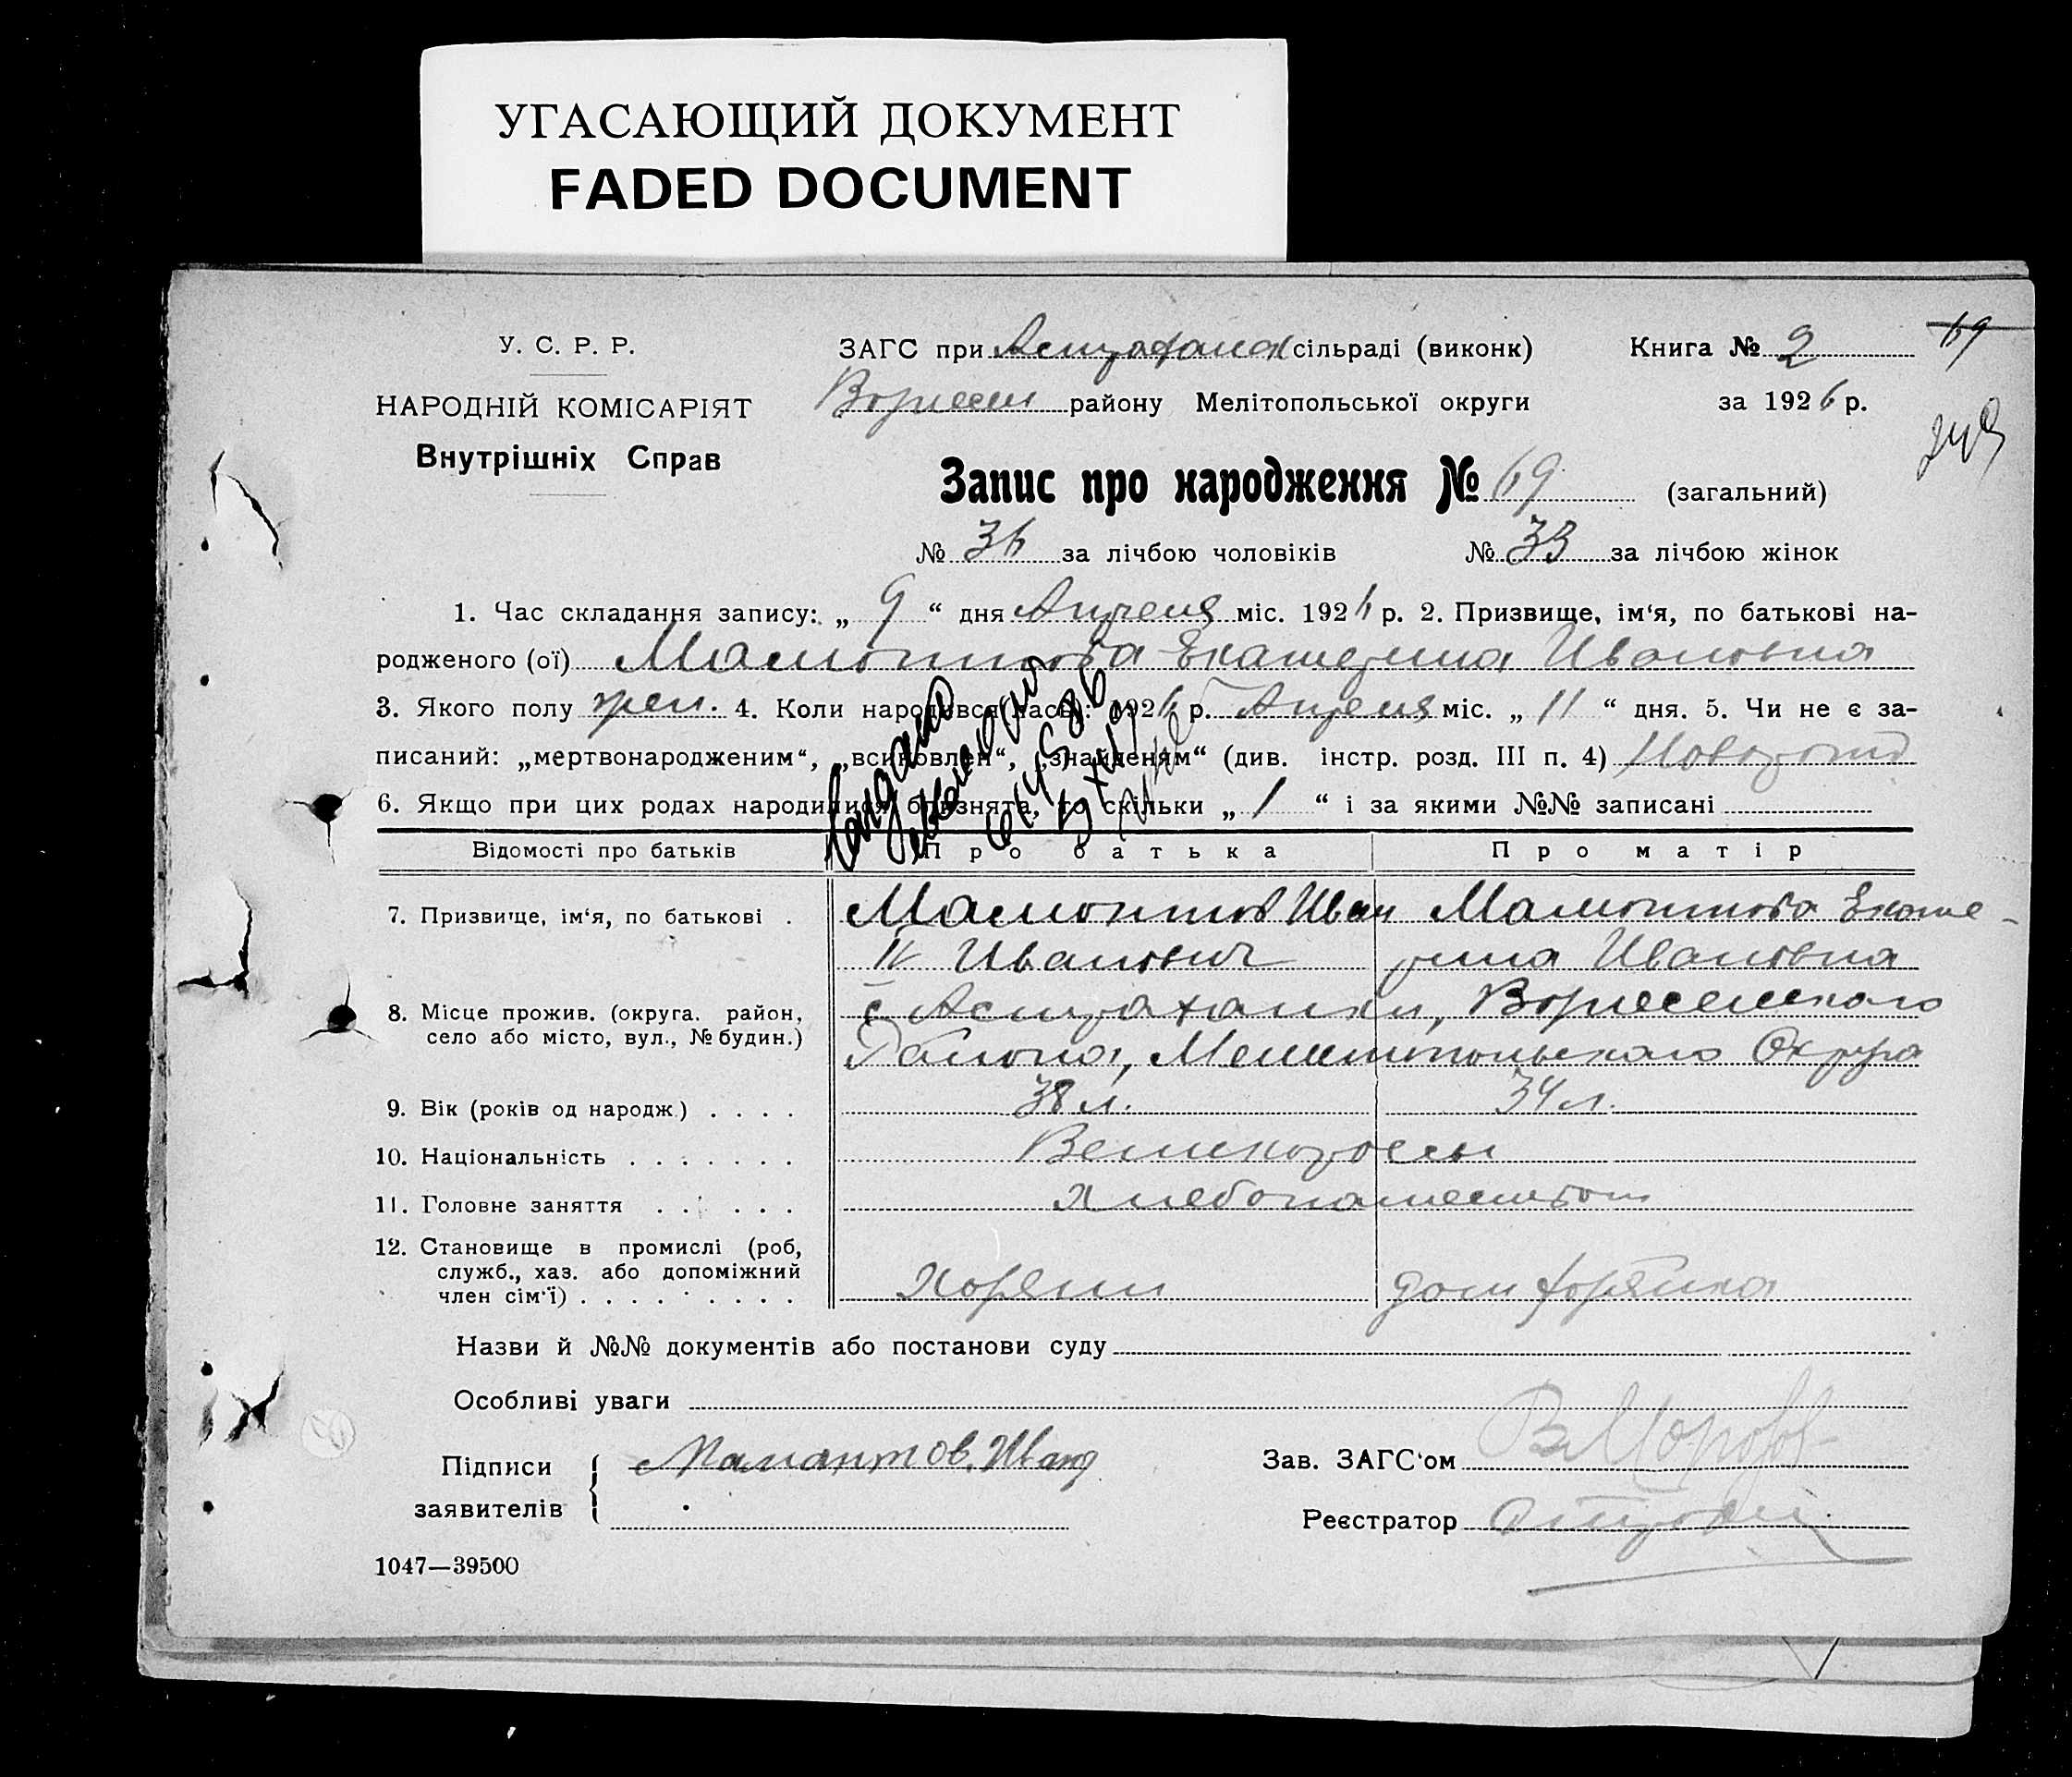 УГАСАЮЩИЙ ДОКУМЕНТ
FADED DOCUMENT
У. С. Р. Р.
НАРОДНІЙ КОМІСАРІЯТ
Внутрішніх Справ
ЗАГС при Астрахан сільраді (виконк)
района Мелітопольської округи
Книга № 2
за 1926 р.
69
Запис про народження № 69 (загальний)
№ 36 за лічбою чоловіків № 33 за лічбою жінок
1. Час складання запису: „ 9 “ дня Апреля міс. 1926 р. 2. Призвище, ім‘я, по батькові на-
родженого (ої) Мамонтова Екатерина Ивановна
3. Якого полу жен. 4. Коли народився 1926 р. Апреля міс. „ 11 “ дня. 5. Чи не є за-
писаний: „мертвонародженим“, „всиновлен“, „знайденям“ (див. інстр. розд. III п. 4)
6. Якщо при цих родах народилися близнята, то скільки „ 1 “ і за якими №№ записані
Відомості про батьків Про батька Про матір
7. Призвище, ім‘я, по батькові . Мамонтов Иван Мамонтова Екате-
Иванович рина Ивановна
8. Місце прожив. (округа. район,
село або місто, вул., № будин.)
с Астраханки,
Района, Мелитопольского Округа
9. Вік (років од народж.) . . . . 38 л. 34 л.
10. Національність . . . . . . . Великороссы
11. Головне заняття . . . . . . Хлебопашеством
12. Становище в промислі (роб,
служб., хаз. або допоміжний
член сім‘ї) . . . . . . . . .
Хозяин дом хозяйка
Назви й №№ документів або постанови суду
Особливі уваги
Підписи
заявителів
Мамантов. Иван
Зав. ЗАГС‘ом
Реєстратор
1047—39500